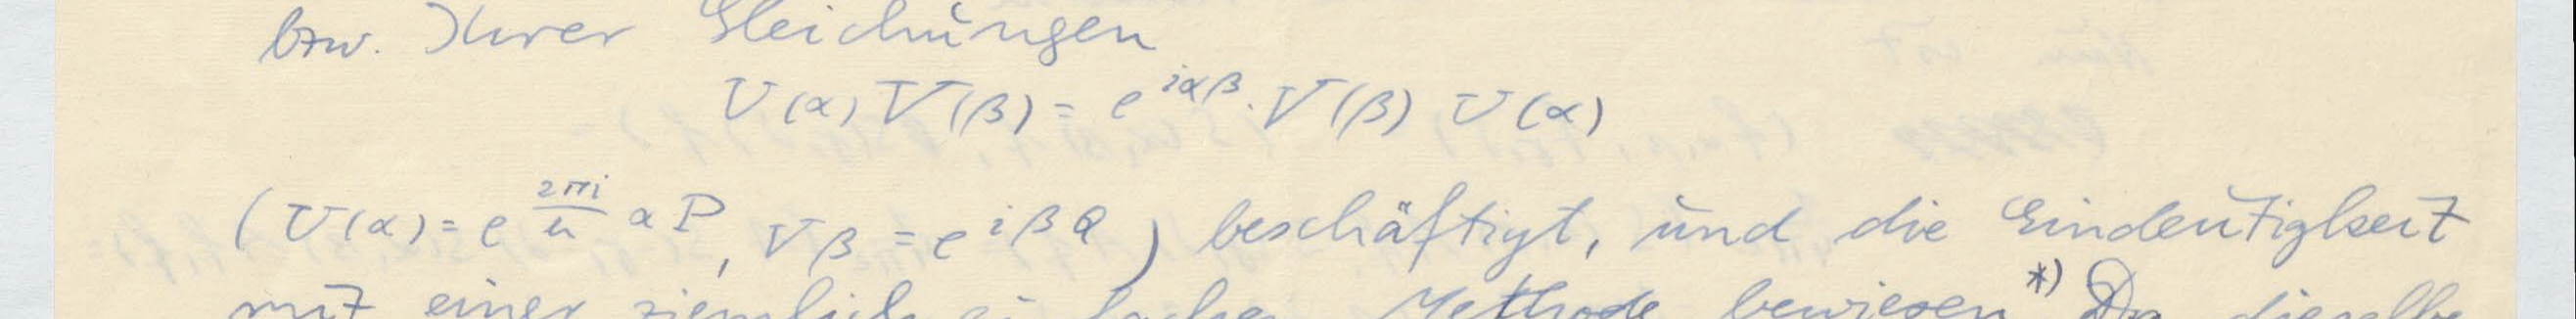 bzw. Ihrer Gleichungen
U(α) V(β) = e^{iαβ} · V(β) U(α)
( U(α) = e^{\frac{2πi}{h} α P}, Vβ = e^{iβQ} ) beschäftigt, und die Eindeutigkeit
mit einer ziemlich einfachen Methode bewiesen *) Da dieselbe